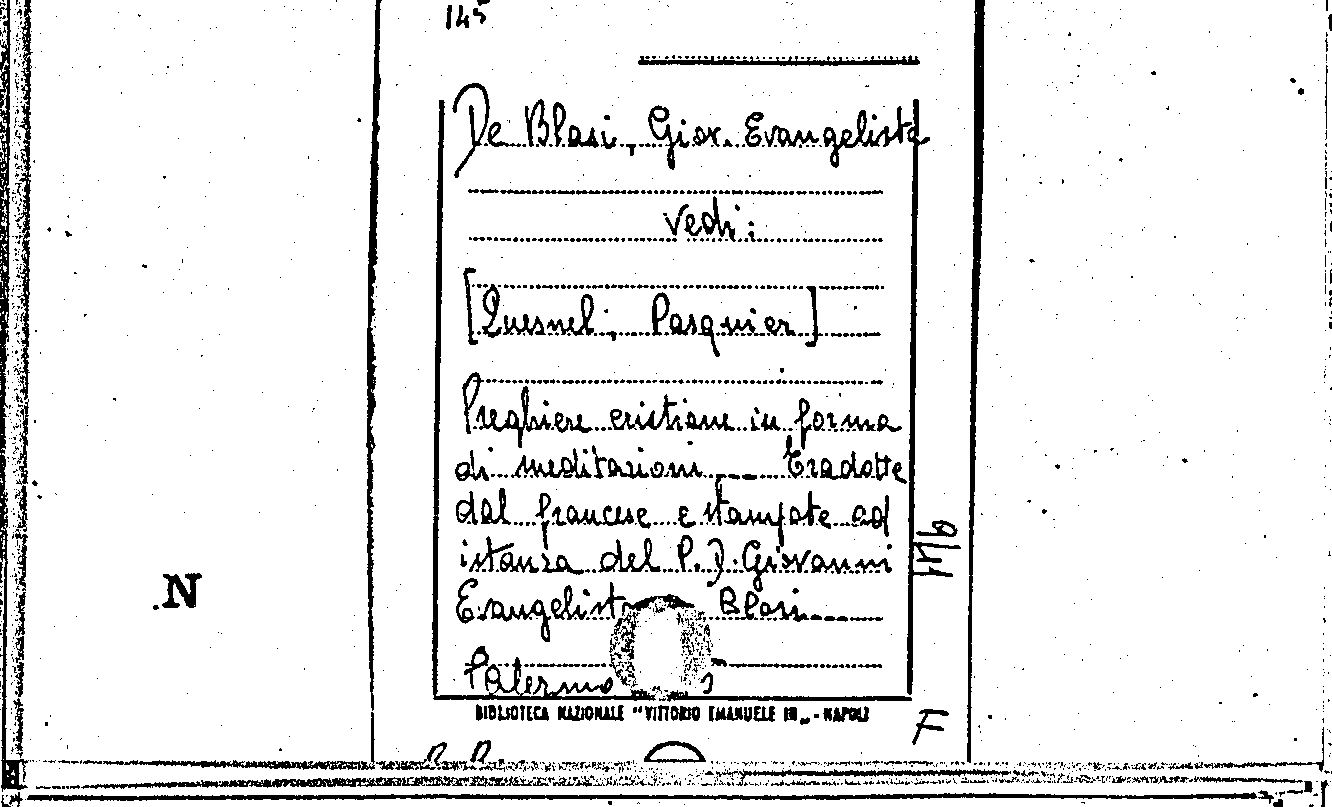 145
De Blasi, Giov. Evangelista
vedi:
[Quesnel, Pasquier]
Preghiere cristiane in forma
di meditazioni __ Tradotte
dal francese e stampate ad
istanza del P. D. Giovanni
Evangelist Blasi __
Palermo
BIBLIOTECA NAZIONALE "VITTORIO EMANUELE III" - NAPOLI
F
N